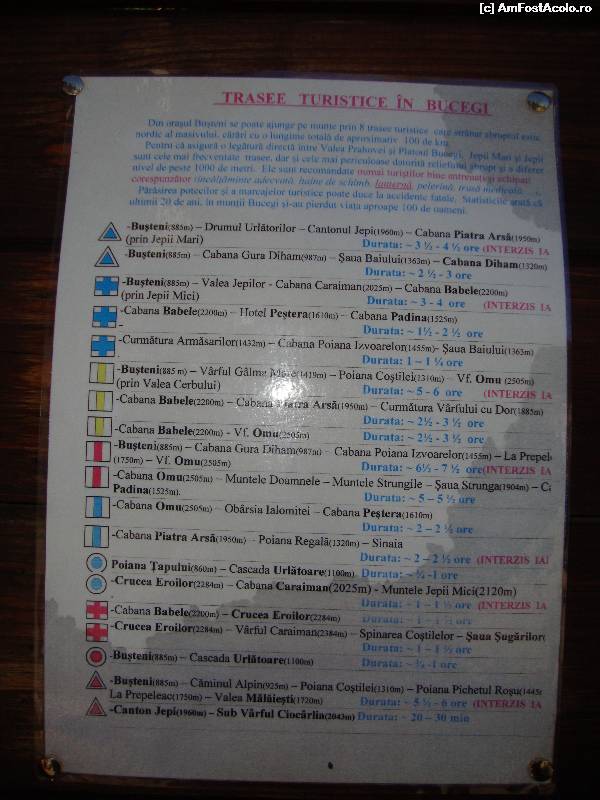 (c) AmFostAcolo.ro
TRASEE TURISTICE ÎN BUCEGI
Din orașul Bușteni se poate ajunge pe munte prin 8 trasee turistice care străbat abruptul estic
nordic al masivului, cărări cu o lungime totală de aproximativ 100 de km.
Pentru că asigură o legătură directă între Valea Prahovei și Platoul Bucegi, Jepii Mari și Jepii
sunt cele mai frecventate trasee, dar și cele mai periculoase datorită reliefului abrupt și a diferenț
nivel de peste 1000 de metri. Ele sunt recomandate numai turiștilor bine antrenați și echipați
corespunzător (încălțăminte adecvată, haine de schimb, lanternă, pelerină, trusă medicală
Părăsirea potecilor și a marcajelor turistice poate duce la accidente fatale. Statisticile arată că
ultimii 20 de ani, în munții Bucegi și-au pierdut viața aproape 100 de oameni.
-Bușteni(885m) – Drumul Urlătorilor – Cantonul Jepi(1960m) – Cabana Piatra Arsă(1950m)
(prin Jepii Mari) Durata: ~ 3 ½ - 4 ½ ore (INTERZIS IA
-Bușteni(885m) – Cabana Gura Diham(987m) – Șaua Baiului(1363m) – Cabana Diham(1320m)
Durata: ~ 2 ½ - 3 ore
-Bușteni(885m) – Valea Jepilor - Cabana Caraiman(2025m) – Cabana Babele(2200m)
(prin Jepii Mici) Durata: ~ 3 - 4 ore (INTERZIS IA
-Cabana Babele(2200m) – Hotel Peștera(1610m) – Cabana Padina(1525m)
Durata: ~ 1½ - 2 ½ ore
-Curmătura Armăsarilor(1432m) – Cabana Poiana Izvoarelor(1455m)- Șaua Baiului(1363m)
Durata: 1 – 1 ¼ ore
-Bușteni(885m) – Vârful Gâlma Mare(1419m) – Poiana Coștilei(1310m) – Vf. Omu (2505m)
(prin Valea Cerbului) Durata: ~ 5 - 6 ore (INTERZIS IA
-Cabana Babele(2200m) – Cabana Piatra Arsă(1950m) – Curmătura Vârfului cu Dor(1885m)
Durata: ~ 2½ - 3 ½ ore
-Cabana Babele(2200m) - Vf. Omu(2505m)
Durata: ~ 2½ - 3 ½ ore
-Bușteni(885m) – Cabana Gura Diham(987m) – Cabana Poiana Izvoarelor(1455m) – La Prepele
(1750m) – Vf. Omu(2505m) Durata: ~ 6½ - 7 ½ ore(INTERZIS IA
-Cabana Omu(2505m) – Muntele Doamnele – Muntele Strungile – Șaua Strunga(1904m) – Ca
Padina(1525m). Durata: ~ 5 – 5 ½ ore
-Cabana Omu(2505m) – Obârșia Ialomitei – Cabana Peștera(1610m)
Durata: ~ 2 – 2 ½ ore
-Cabana Piatra Arsă(1950m) – Poiana Regală(1320m) – Sinaia
Durata: ~ 2 – 2 ½ ore (INTERZIS IA
Poiana Țapului(860m) – Cascada Urlătoare(1100m) Durata: ~ ¾ -1 ore
-Crucea Eroilor(2284m) – Cabana Caraiman(2025m) - Muntele Jepii Mici(2120m)
Durata: ~ 1 – 1 ½ ore (INTERZIS IA
-Cabana Babele(2200m) – Crucea Eroilor(2284m) Durata: ~ 1 – 1 ½ ore
-Crucea Eroilor(2284m) – Vârful Caraiman(2384m) – Spinarea Coștilelor – Șaua Șugărilor(
Durata: ~ 1 – 1 ½ ore
-Bușteni(885m) – Cascada Urlătoare(1100m) Durata: ~ ¾ -1 ore
-Bușteni(885m) – Căminul Alpin(925m) – Poiana Coștilei(1310m) – Poiana Pichetul Roșu(1445m
La Prepeleac(1750m) – Valea Mălăiești(1720m) Durata: ~ 5 ½ - 6 ore (INTERZIS IA
-Canton Jepi(1960m) – Sub Vârful Ciocârlia(2043m) Durata: ~ 20 – 30 min